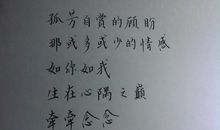 孤芳自賞的顧盼
那或多或少的情感
如你如我
生在心隅之巔
牽牽念念